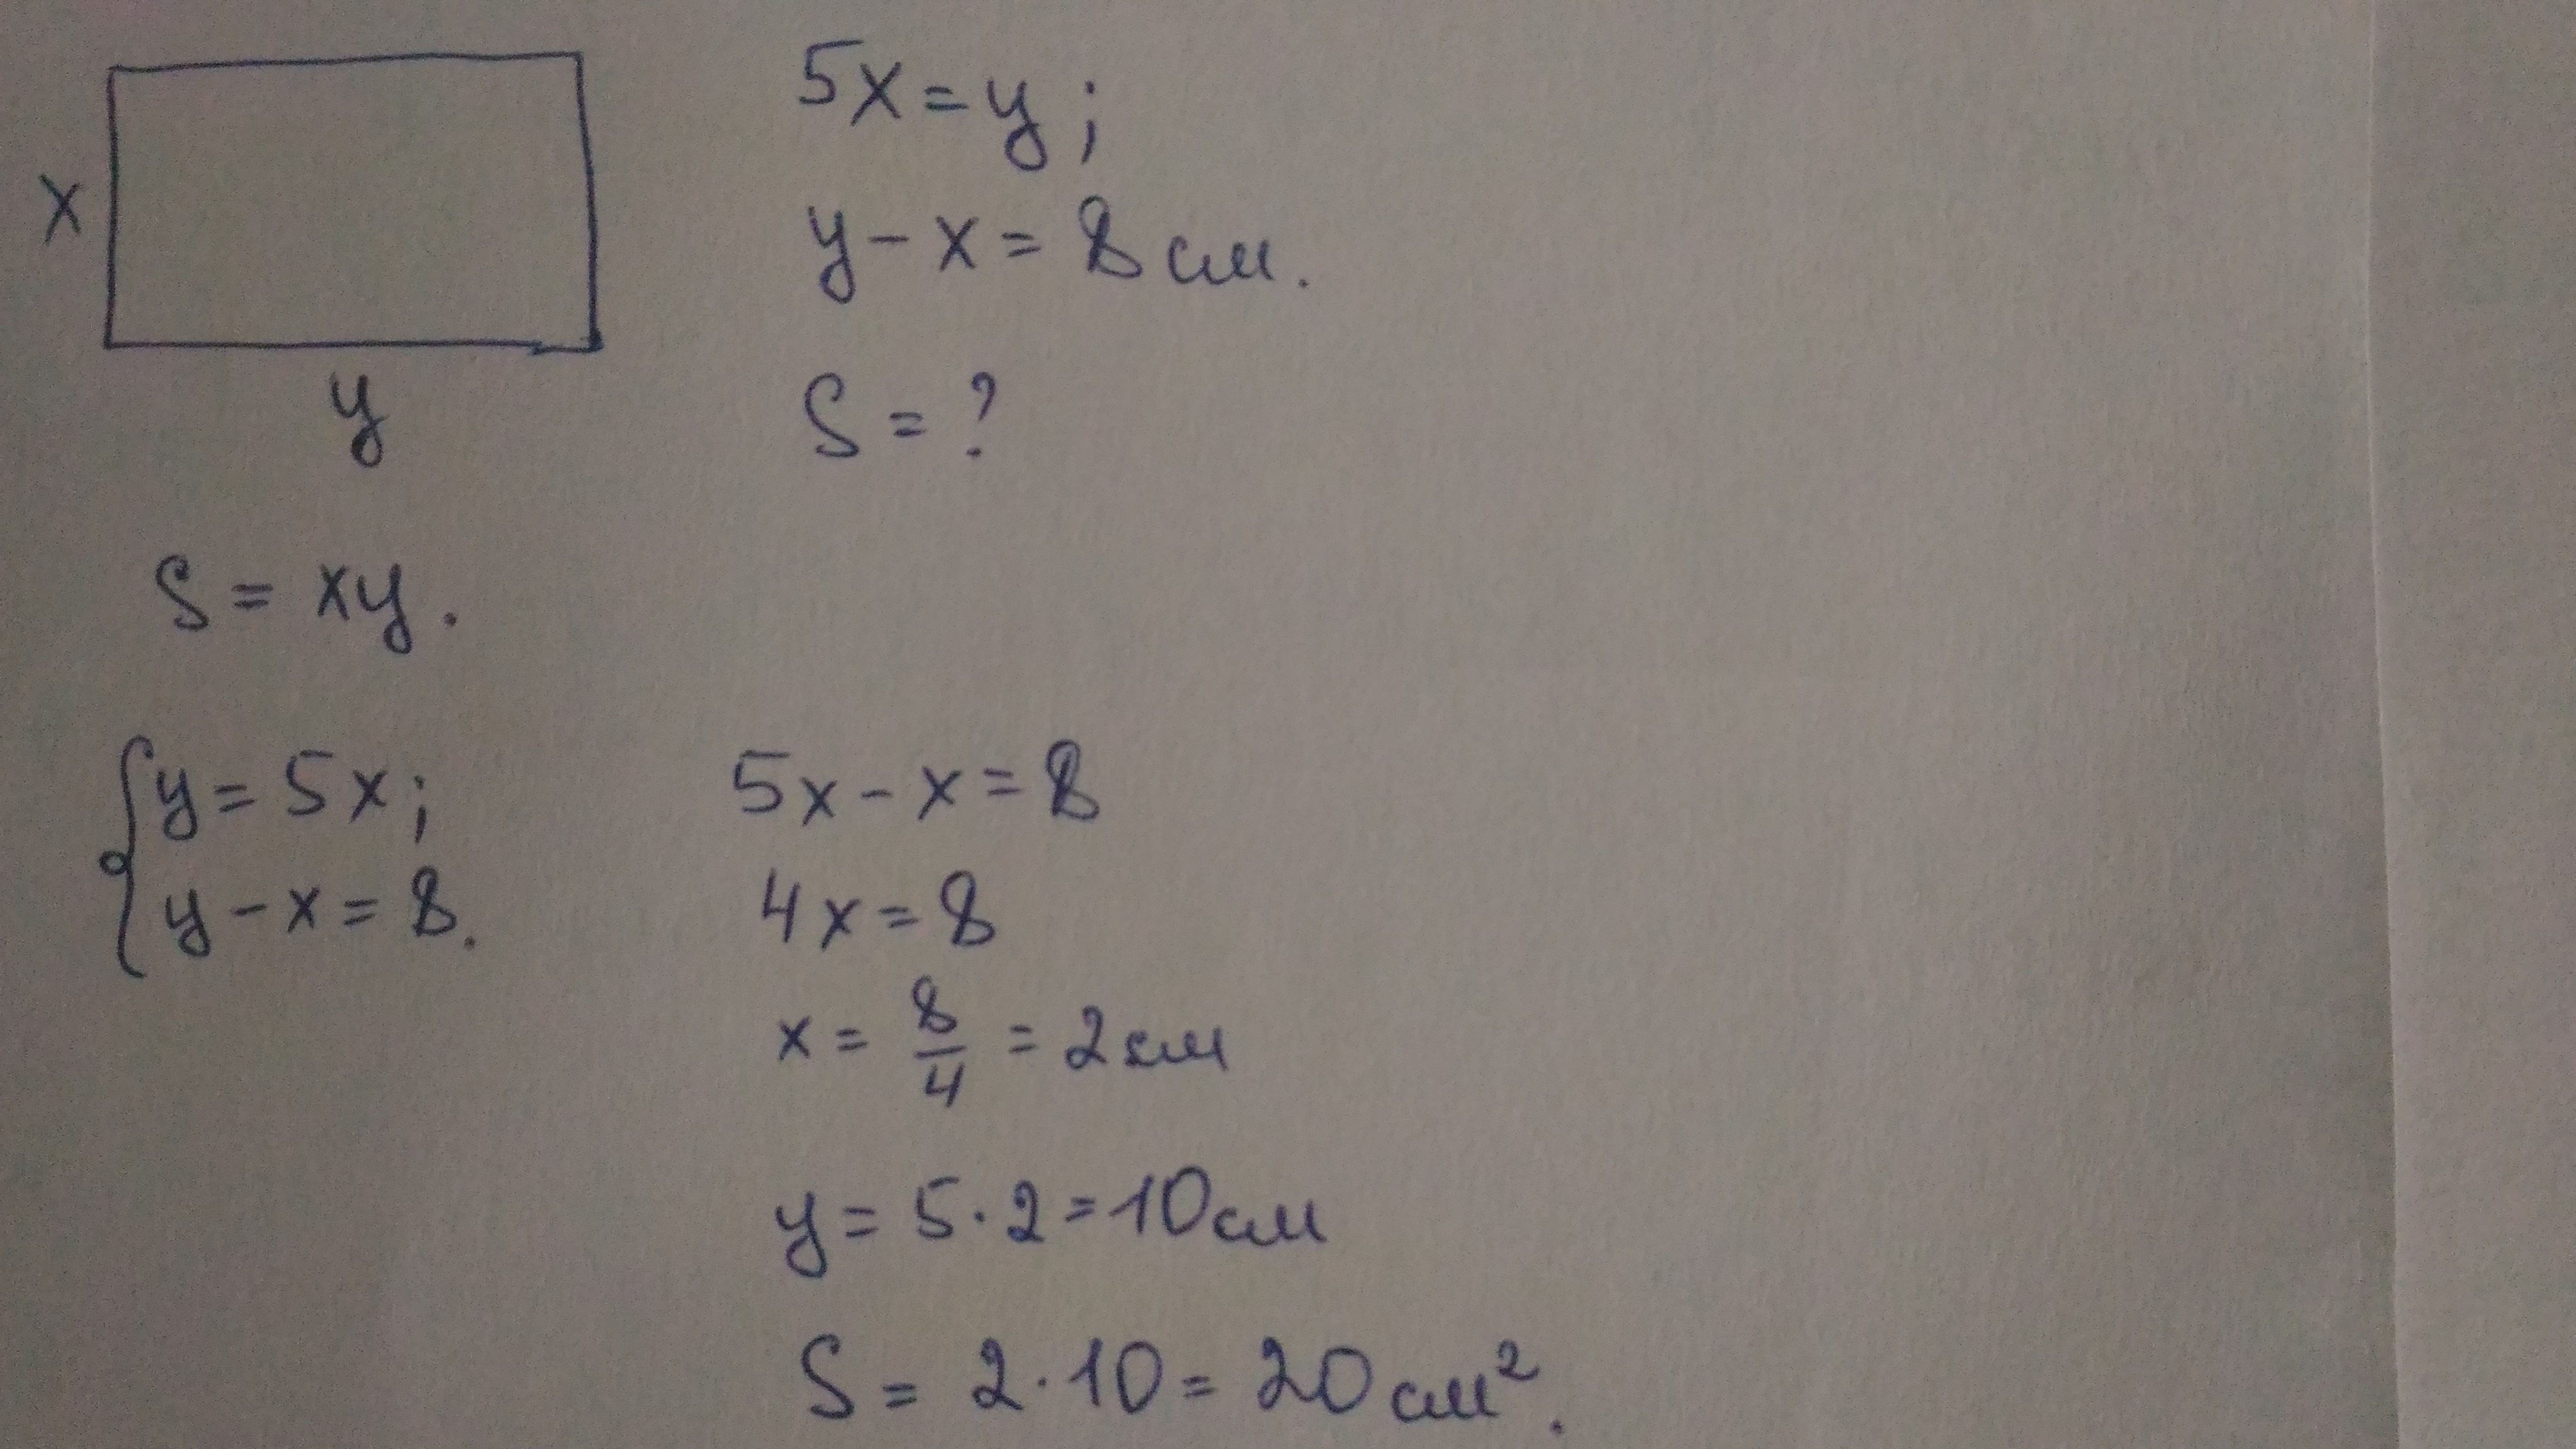 x
y
5x = y;
y - x = 8 см.
S = ?
S = xy.
{ y = 5x;
y - x = 8.
5x - x = 8
4x = 8
x = 8/4 = 2 см
y = 5 · 2 = 10 см
S = 2 · 10 = 20 см².